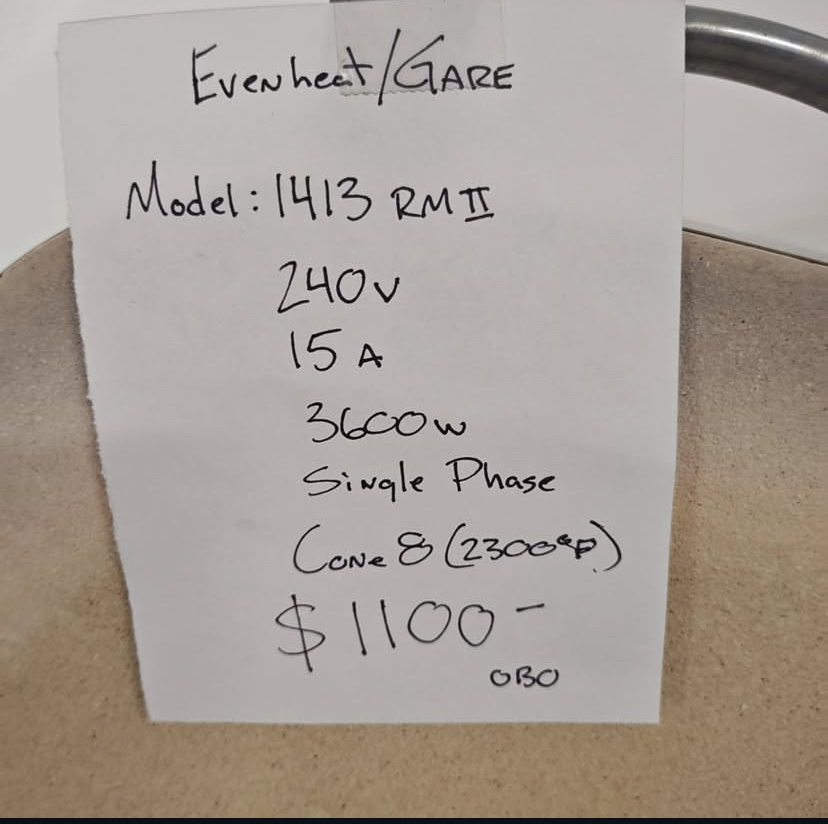 Evenheat/GARE
Model: 1413 RM II
240v
15 A
3600w
Single Phase
Cone 8 (2300°F)
$1100-
OBO